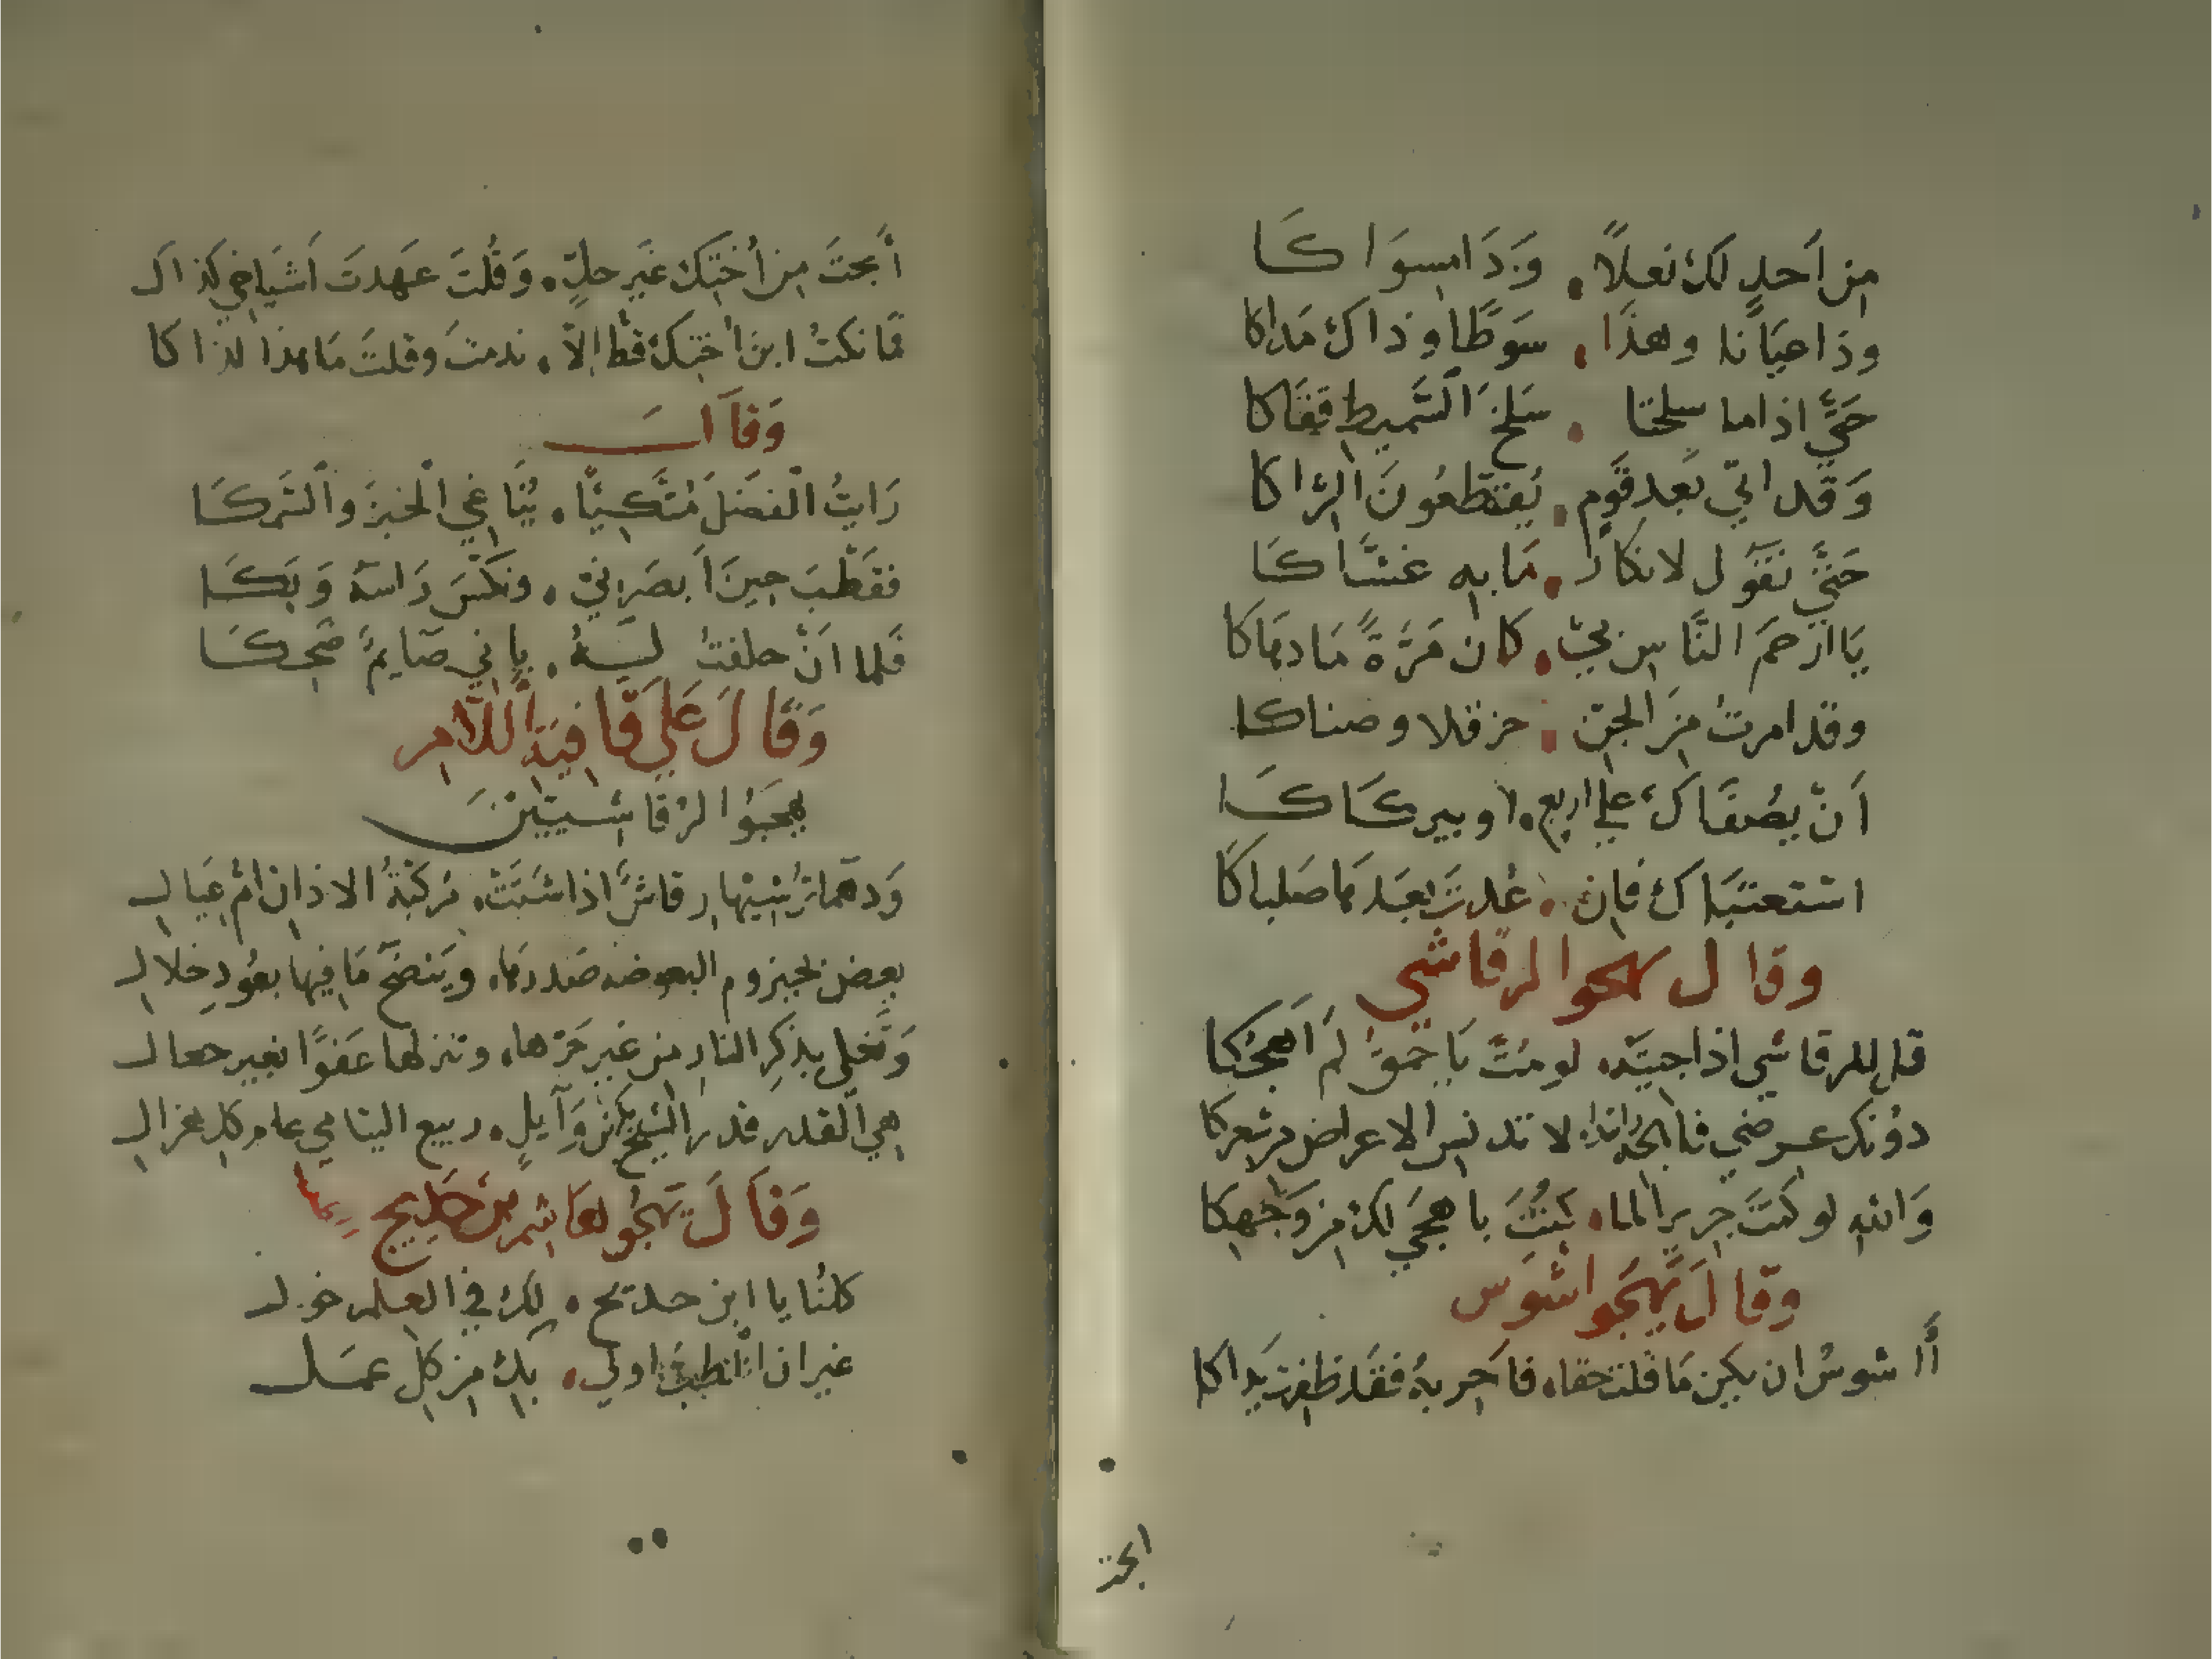 من أحدٍ لك نعلاً . وَذَا مسوَاكَا
وذا عيانا وهذا . سَوطًا وذاك مَداكا
حتَّى اذا ما سلختا . سَلخَ السَّميط قفَاكا
وَقد اتى بَعد قَوم . يُقتطعُونَ الرَّاكا
حَتَّى نقَول لا نكاد . مَا به غشَّاكَا
يَا ارَحمَ النَّاس . كان مَرَّةً مَا دهَاكا
وقد امرتُ مِنَ الجنّ . حزقلا وصناكا
اَنْ يصُفَاك على اربع . او يبركَاكَا
استعتبَاك فإن . عُدتَ بَعد مَا صَلباكا
وقال يهجوا الرقاشي
قل للرقاشي اذا جيته . لو مُتَّ يَا احمقُ لم اَهجُكا
دُونك عرضي فاهجه لا تدنس الاعراض من شعركا
وَالله لو كنتَ جريرًا لما . كنتُ باهجَى لك من وَجهكا
وقال يَهجو اشوَس
أَاشوسُ ان يكن مَا قلت حقا . فاَحر به فقَد ظفرت يَداكا
الجز
أبحتَ من أختِك غيَر حلٍّ . وَقُلتَ عَهدتَ اَشيَاخي كذاك
فما نكتُ ابنَ اُختك قط إلاّ . ندمتَ وقلتَ مَا هذا لذاكا
وَقاَلَ
رَايتُ الفضلَ مُتَّكيًّا . يُنَاغي الخبزَ وَالسَّمكَا
فقَطَّبَ حينَ اَبصَرني . ونكّسَ رَاسَهُ وَبَكَا
فَلما اَنْ حلفتُ لهُ . باني صَايمٌ ضحِكَا
وَقَالَ عَلَى قافيَة اللاَّمِ
يهجَوُا الرَّقاشيّينَ
وَدهمَا تُثفيها رقاشٌ اذا شتَتْ . مركَبَةُ الاذان امّ عيَال
يعض بحيزوم البعوضه صَدرهَا . ويَنضحُ مَا فيها بعُودِ خلال
وَتغلي بذكرِ النار من غير حَرّها . وتنزلها عَفوًا بغير جعال
هي القدر قدر الشيخ بَكرِ بنِ وَآيلٍ . ربيع اليتامى عام كل هزال
وَقاَلَ يَهجُو لهاشم بن حَدِيج
كلنُا يا ابن حديج . لك في العلم خول
غير ان الطب اولى . بك من كلِ عمَل